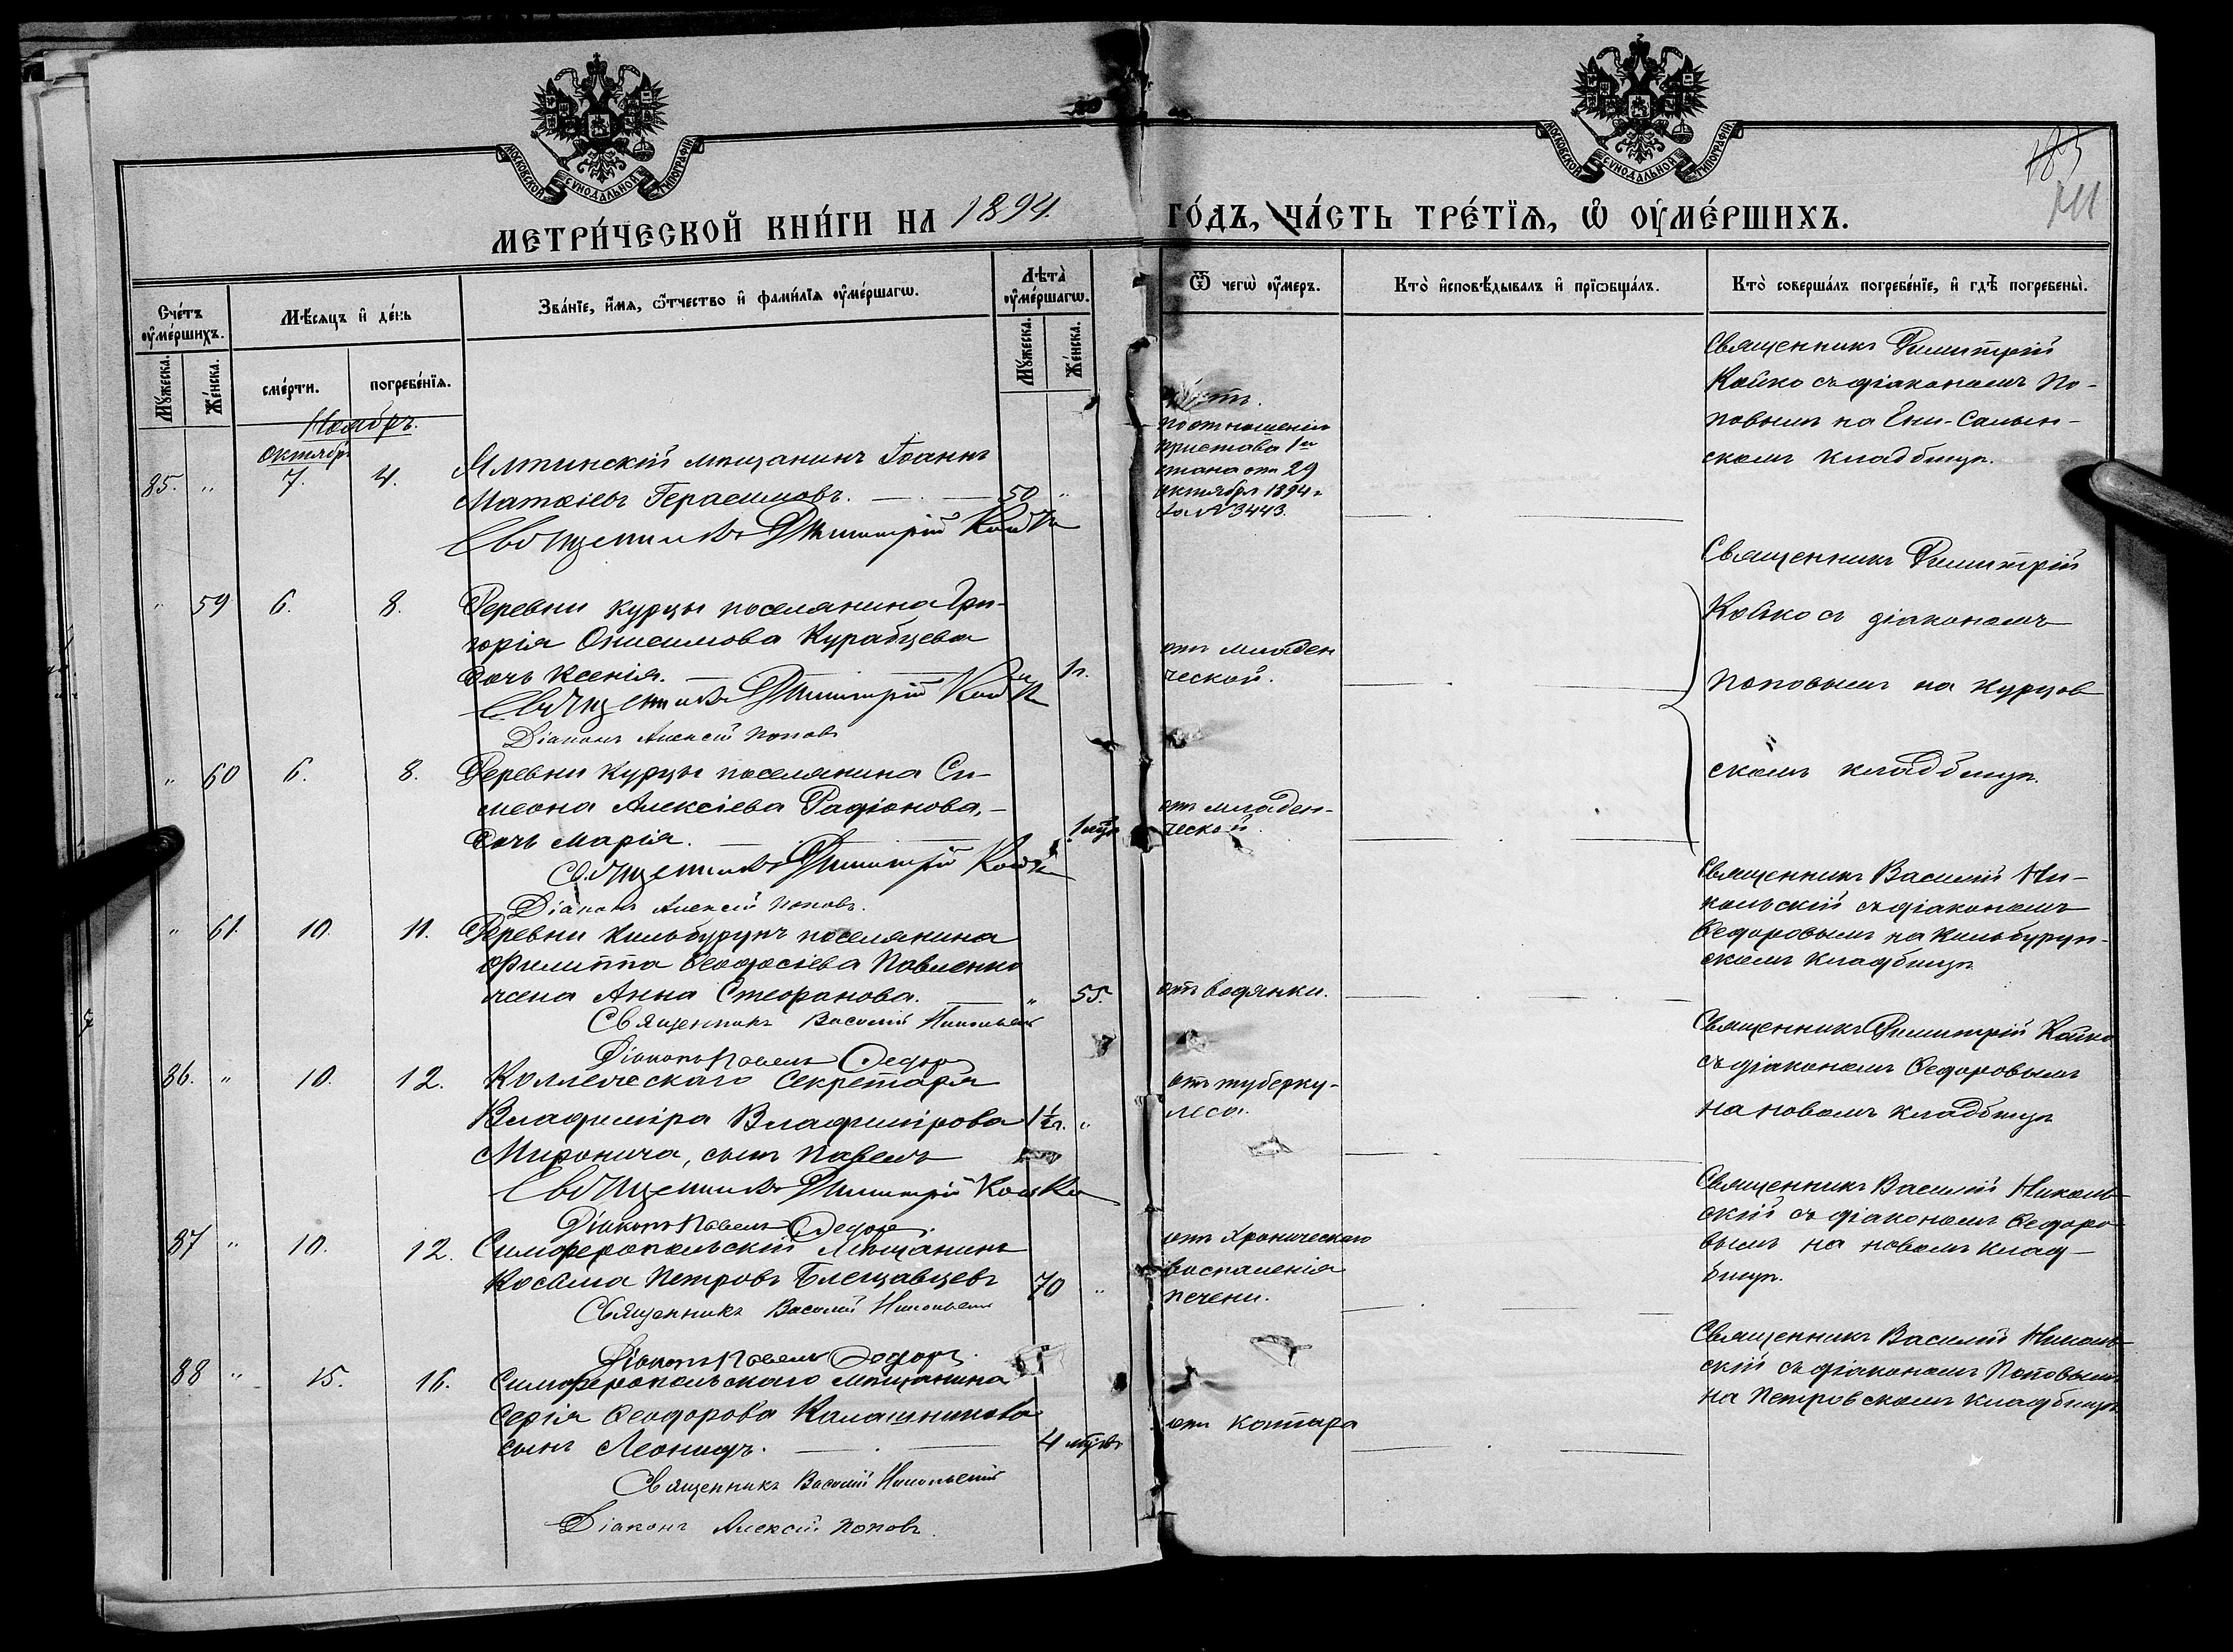 МОСКОВСКОЙ СѴНОДАЛЬНОЙ ТИПОГРАФІИ
МОСКОВСКОЙ СѴНОДАЛЬНОЙ ТИПОГРАФІИ
185
МЕТРИ́ЧЕСКОЙ КНИ́ГИ НА 1894.
ГО́ДЪ, ЧА́СТЬ ТРЕ́ТЇѦ, Ѡ҆ ОУ҆МЕ́РШИХЪ.
Сче́тъ оу҆ме́ршихъ.
Мꙋ́жеска.
Же́нска.
Мѣ́сѧцъ и҆ де́нь
сме́рти.
погребе́нїѧ.
Зва́нїе, и҆́мѧ, ѻ҆́тчество и҆ фами́лїѧ оу҆ме́ршагѡ.
Лѣ́та оу҆ме́ршагѡ.
Мꙋ́жеска.
Же́нска.
Ѿ чегѡ̀ оу҆́меръ.
Кто̀ и҆сповѣ́дывалъ и҆ прїѡбща́лъ.
Кто̀ соверша́лъ погребе́нїе, и҆ гдѣ̀ погребены̀.
Ноябрь.
Октябр
85. " 7. 4.
Ялтинскій мѣщанинъ Іоаннъ
Матѳіевъ Герасимовъ. — 50 "
Священникъ Димитрій Койко
По отношенію
пристава 1го
стана отъ 29
октября 1894 г.
за № 3443.
Священникъ Димитрій
Койко съ діакономъ По-
повымъ на Ени-Салын-
скомъ кладбищѣ.
" 59 6. 8.
Деревни Курцы поселянина Гри-
горія Онисимова Курабцева
дочь Ксенія. — 1 г.
Священникъ Димитрій Койко
Діаконъ Алексій Поповъ
отъ младен
ческой.
Священникъ Димитрій
Койко съ діакономъ
Поповымъ на Курцов
скомъ кладбищѣ.
" 60 6. 8.
Деревни Курцы поселянина Си-
меона Алексіева Радіонова, —
дочь Марія. — 1 мѣс
Священникъ Димитрій Койко
Діаконъ Алексій Поповъ.
отъ младен-
ческой.
" 61. 10. 11.
Деревни Кильбурунъ поселянина
Филиппа Ѳеодосіева Павленко
жена Анна Стефанова. — " 55.
Священникъ Василій Никольскій
Діаконъ Павелъ Федор
отъ водянки.
Священникъ Василій Ни-
кольскій съ діакономъ
Ѳедоровымъ на Кильбурун-
скомъ кладбищѣ
86. " 10. 12.
Коллежскаго Секретаря
Владиміра Владимірова 1½ г. "
Миронича, сынъ Павелъ
Священникъ Димитрій Койко
Діаконъ Павелъ Федор
отъ туберку-
леса.
Священникъ Димитрій Койко
съ діакономъ Ѳедоровымъ
на новомъ кладбищѣ
87 " 10. 12.
Симферопольскій Мѣщанинъ
Косьма Петровъ Блещавцевъ 70 "
Священникъ Василій Никольскій
Діаконъ Павелъ Федор
отъ хроническаго
воспаленія
печени.
Священникъ Василій Николь-
скій съ діакономъ Ѳедоро
вымъ на новомъ клад-
бищѣ.
88 " 15. 16.
Симферопольскаго мѣщанина
Сергія Ѳеодорова Калашникова
сынъ Леонидъ. — 4 мѣсяц
Священникъ Василій Никольскій
Діаконъ Алексій Поповъ.
отъ катара
Священникъ Василій Николь-
скій съ діакономъ Поповымъ
на Петровскомъ кладбищѣ